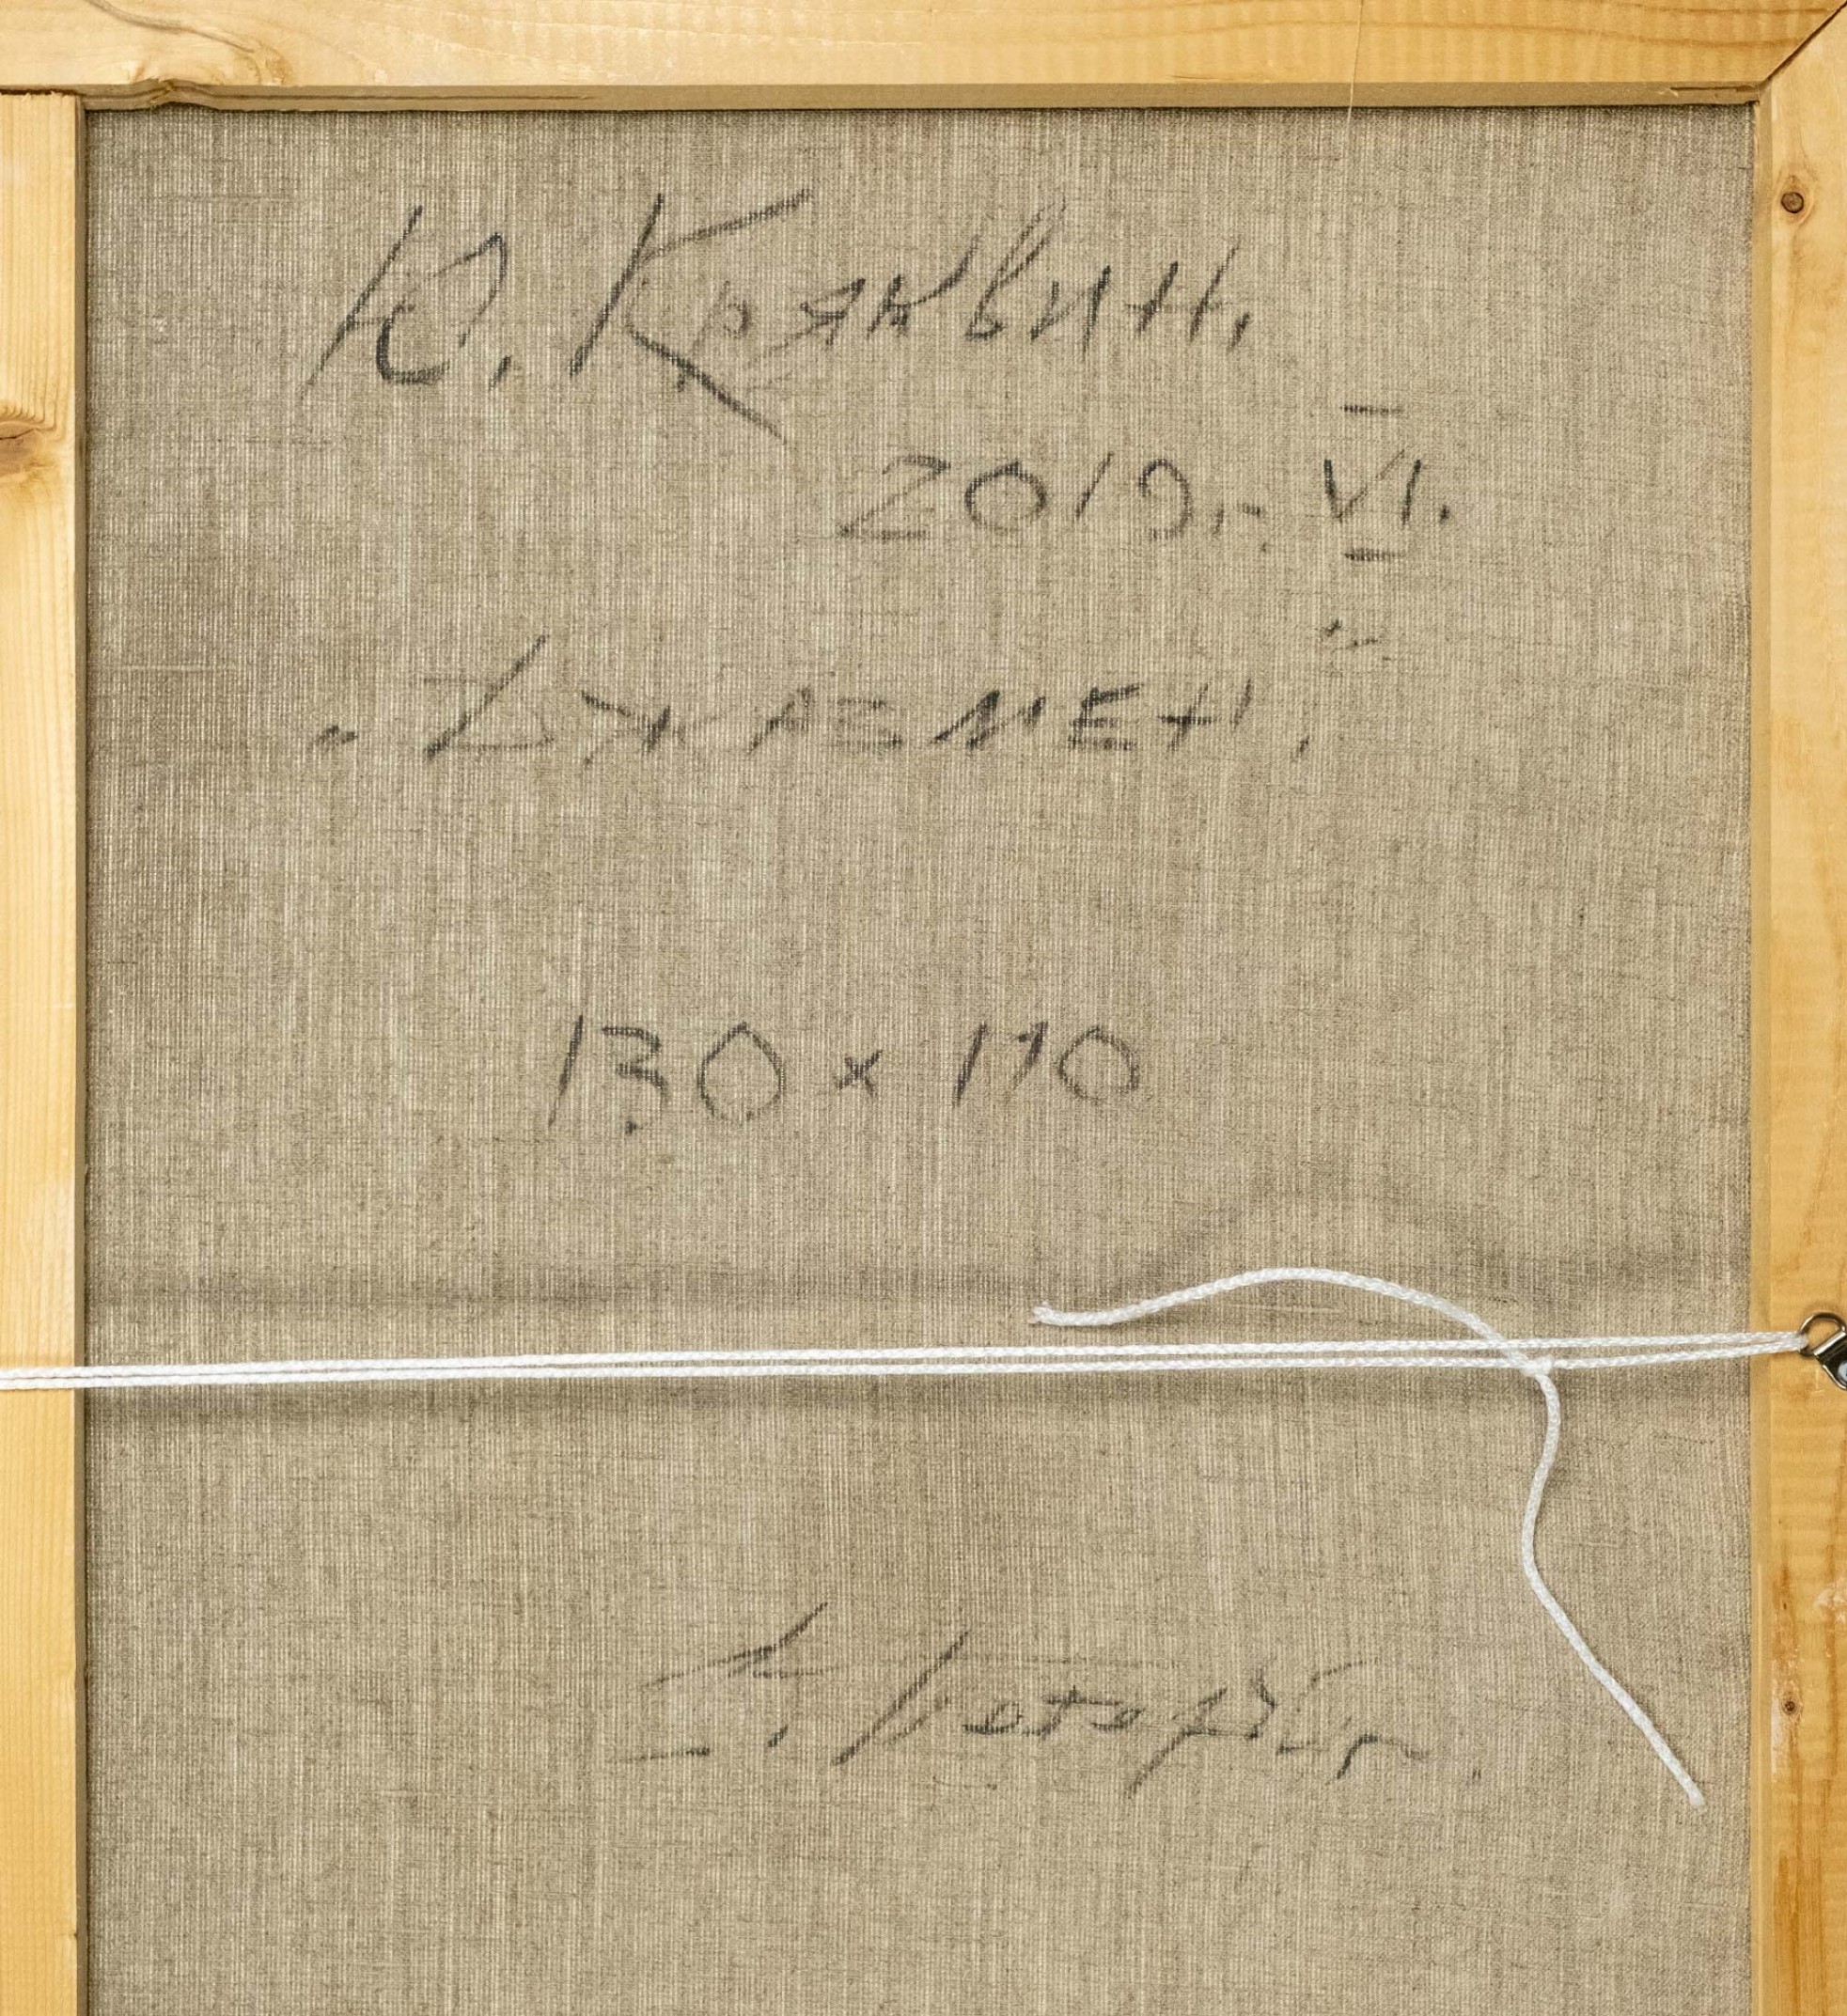 Ю. Кряквин.
2019.- VI.
„Джазмен“.
130 x 110